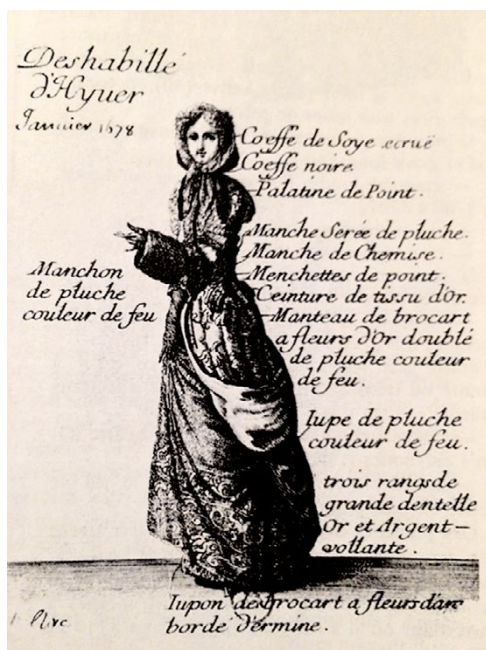 Deshabillé
d'Hyuer
Janvier 1678
Coeffe de Soye ecruë
Coeffe noire
Palatine de Point.
Manche Serée de pluche.
Manche de Chemise.
Menchettes de point.
Ceinture de tissu d'Or.
Manteau de brocart
a fleurs d'Or doublé
de pluche couleur
de feu.
Manchon
de pluche
couleur de feu
Iupe de pluche
couleur de feu.
trois rangs de
grande dentelle
Or et Argent
vollante.
Iupon de brocart a fleurs
bordé d'ermine.